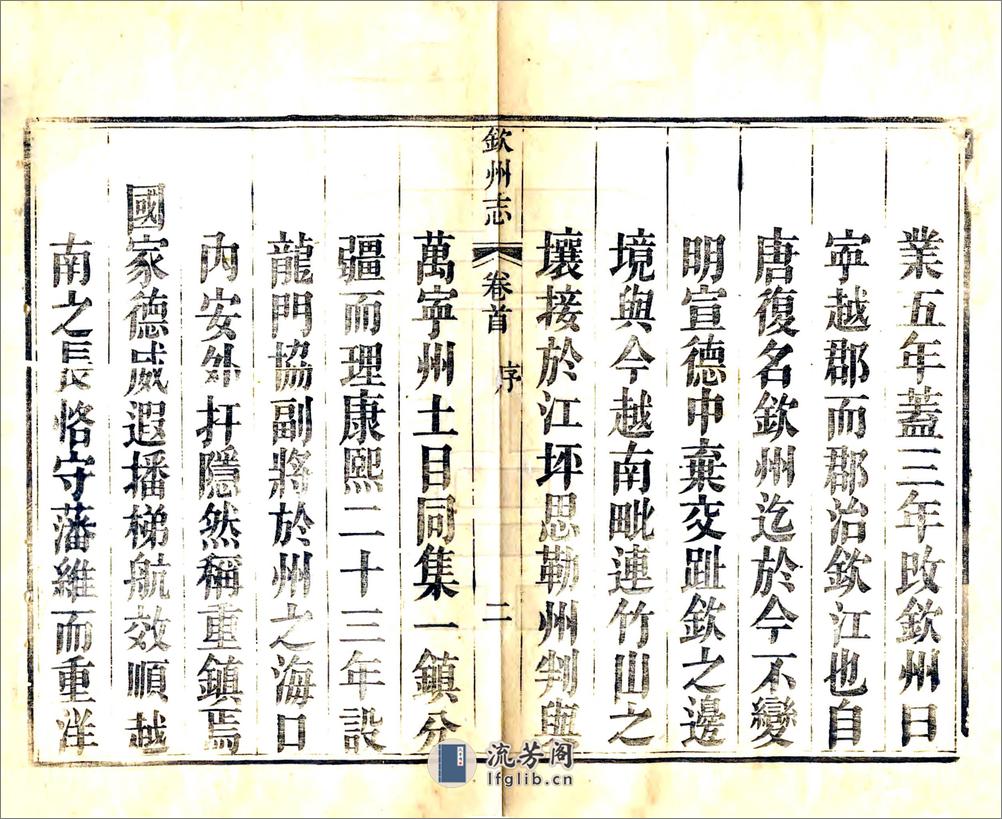 業五年蓋三年改欽州曰
寕越郡而郡治欽江也自
唐復名欽州迄於今不變
明宣德中棄交趾欽之邊
境與今越南毗連竹山之
壤接於江坪思勒州判與
欽州志 卷首 序 二
萬寧州土目同集一鎮分
疆而理康熙二十三年設
龍門協副將於州之海口
內安外扞隱然稱重鎮焉
國家德威遐播梯航效順越
南之長恪守藩維而重洋
流芳阁
lfglib.cn